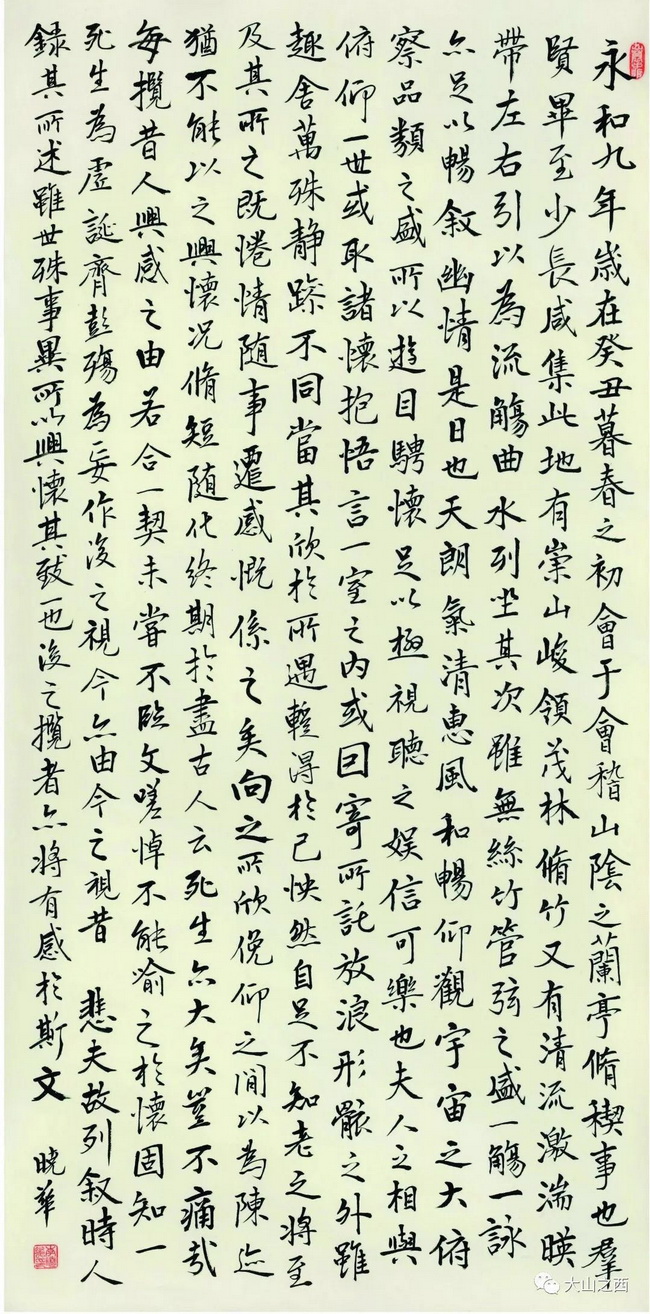 永和九年歲在癸丑暮春之初會于會稽山陰之蘭亭脩稧事也羣
賢畢至少長咸集此地有崇山峻領茂林脩竹又有清流激湍暎
帶左右引以為流觴曲水列坐其次雖無絲竹管弦之盛一觴一詠
亦足以暢叙幽情是日也天朗氣清惠風和暢仰觀宇宙之大俯
察品類之盛所以遊目騁懷足以極視聽之娱信可樂也夫人之相與
俯仰一世或取諸懷抱悟言一室之内或因寄所託放浪形骸之外雖
趣舍萬殊静躁不同當其欣於所遇蹔得於己怏然自足不知老之將至
及其所之既惓情随事遷感慨係之矣向之所欣俛仰之閒以為陳迹
猶不能以之興懷况脩短随化終期於盡古人云死生亦大矣豈不痛哉
每攬昔人興感之由若合一契未嘗不臨文嗟悼不能喻之於懷固知一
死生為虚誕齊彭殤為妄作後之視今亦由今之視昔 悲夫故列叙時人
録其所述雖世殊事異所以興懷其致一也後之攬者亦將有感於斯文
晓華
大山之西